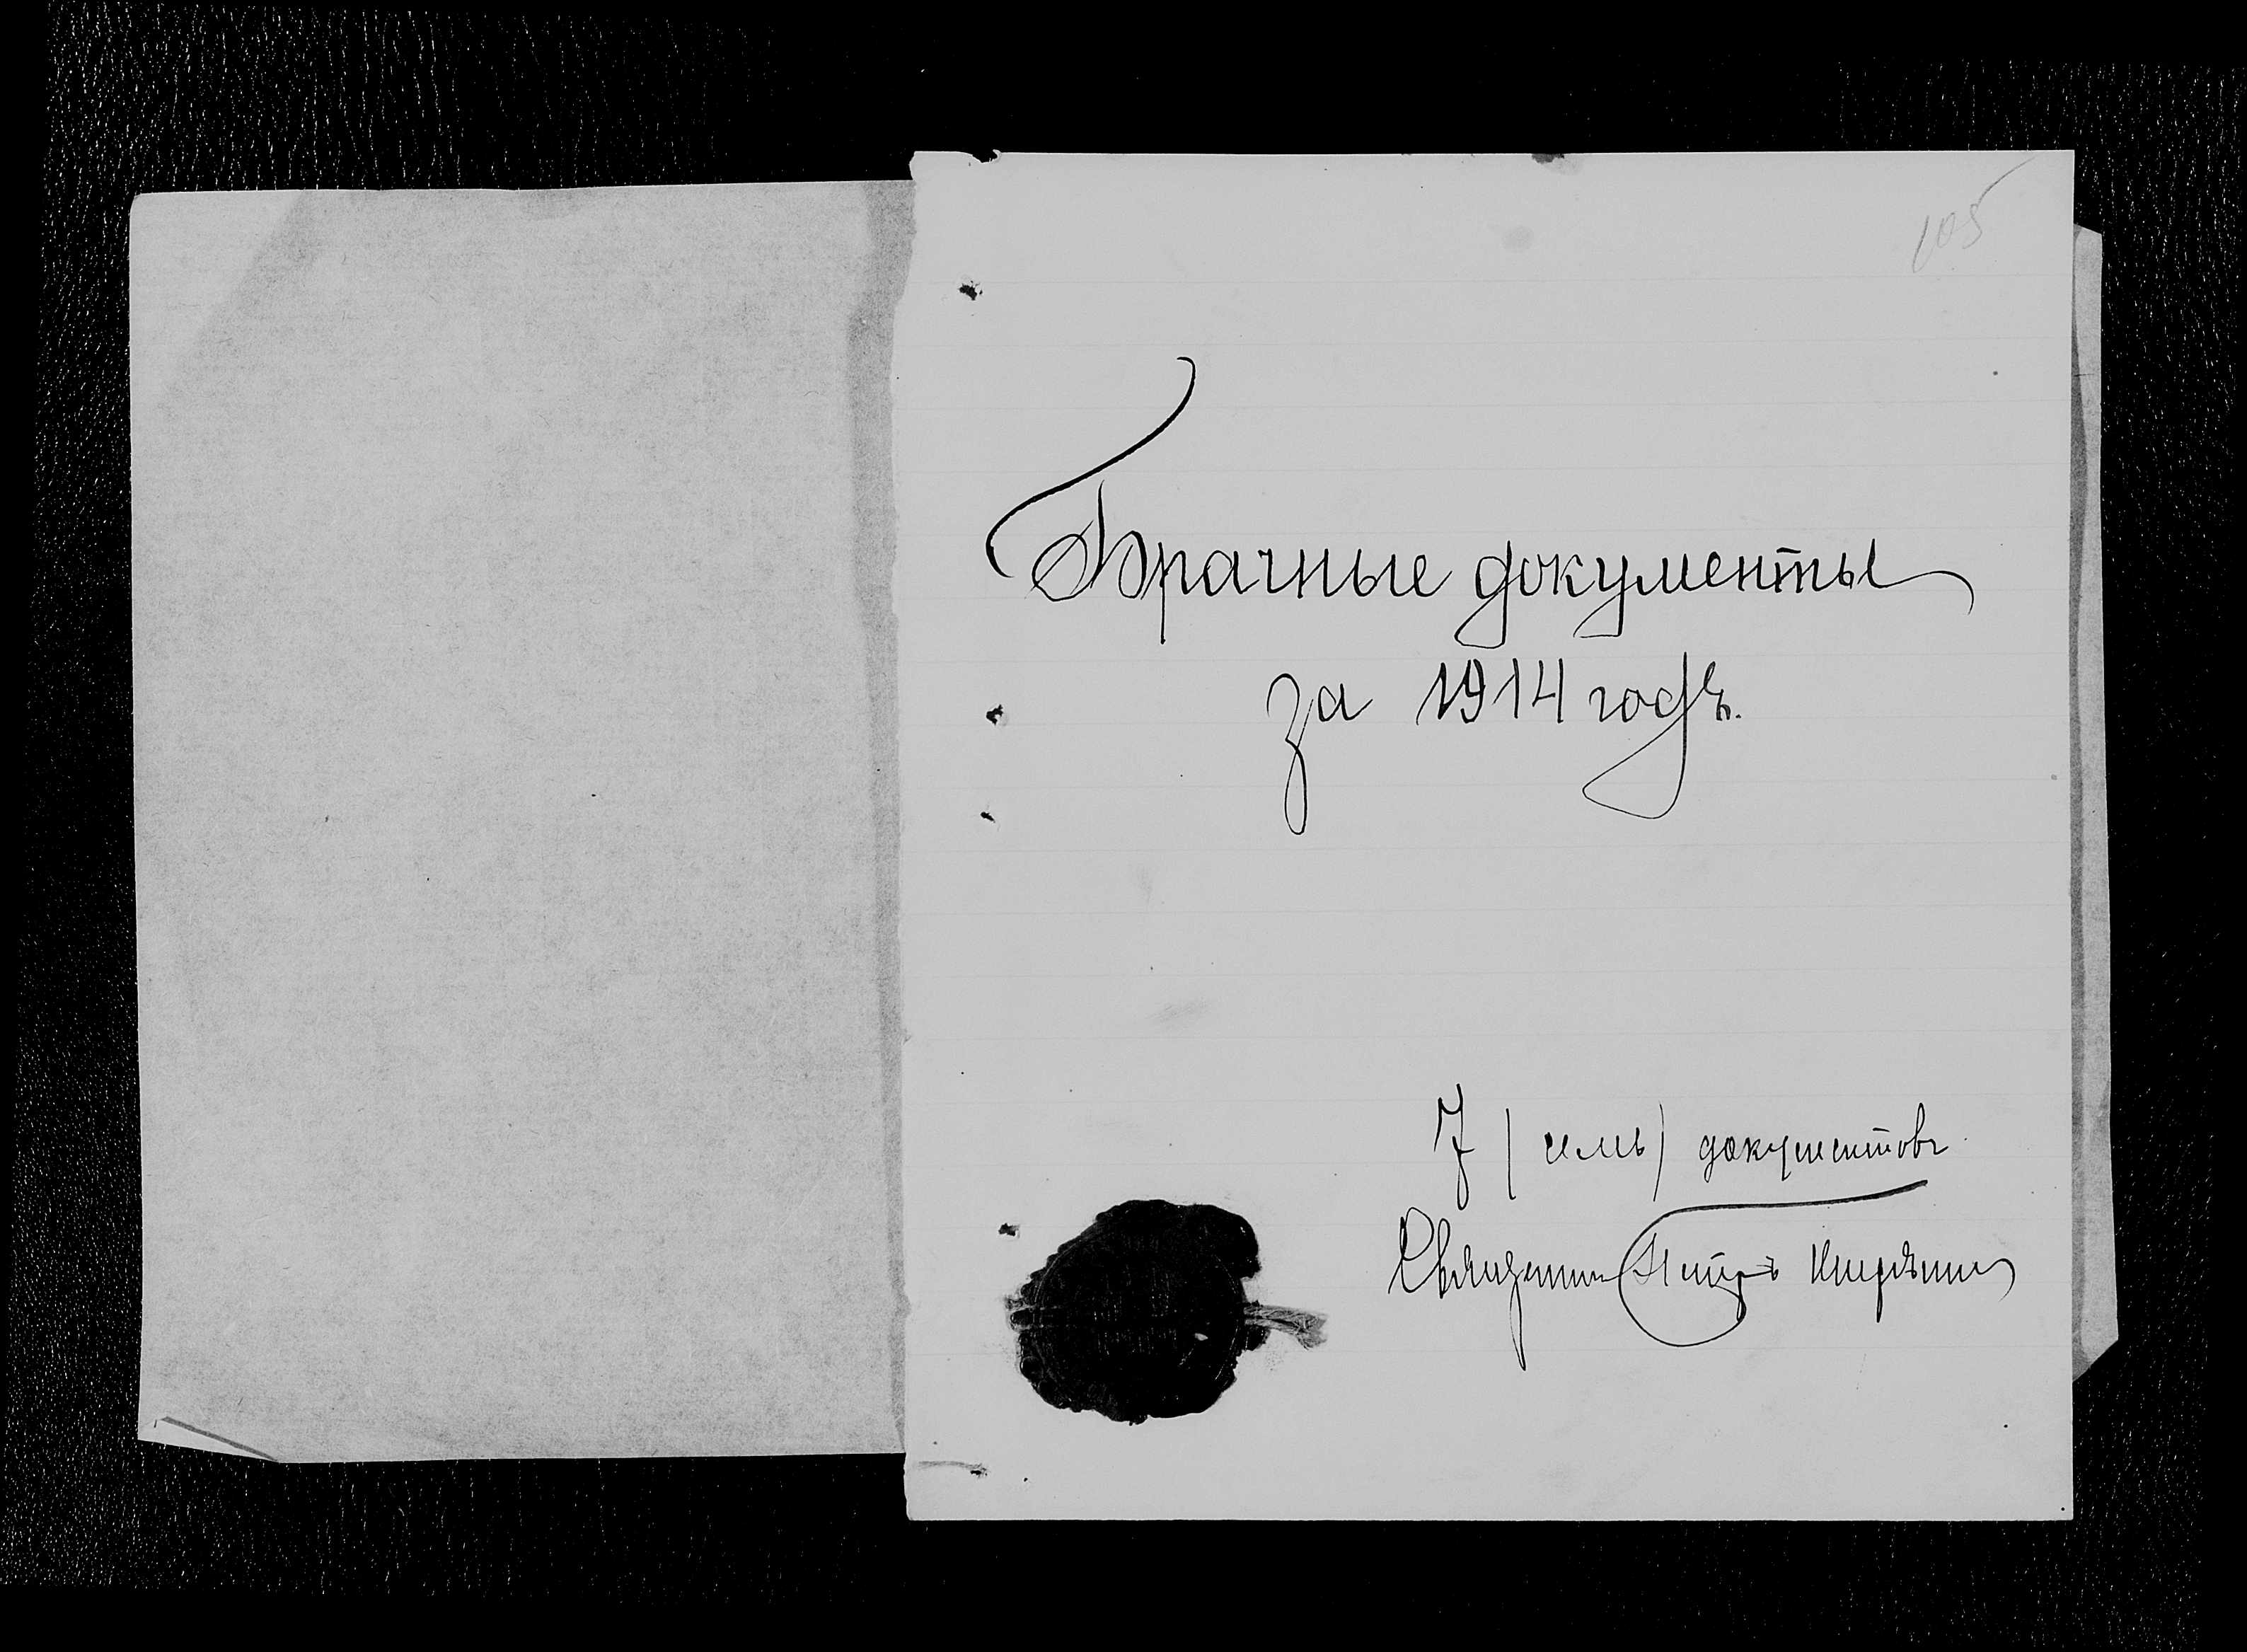 105
Брачные документы
за 1914 годъ.
7 (семь) документовъ
Священникъ Петръ